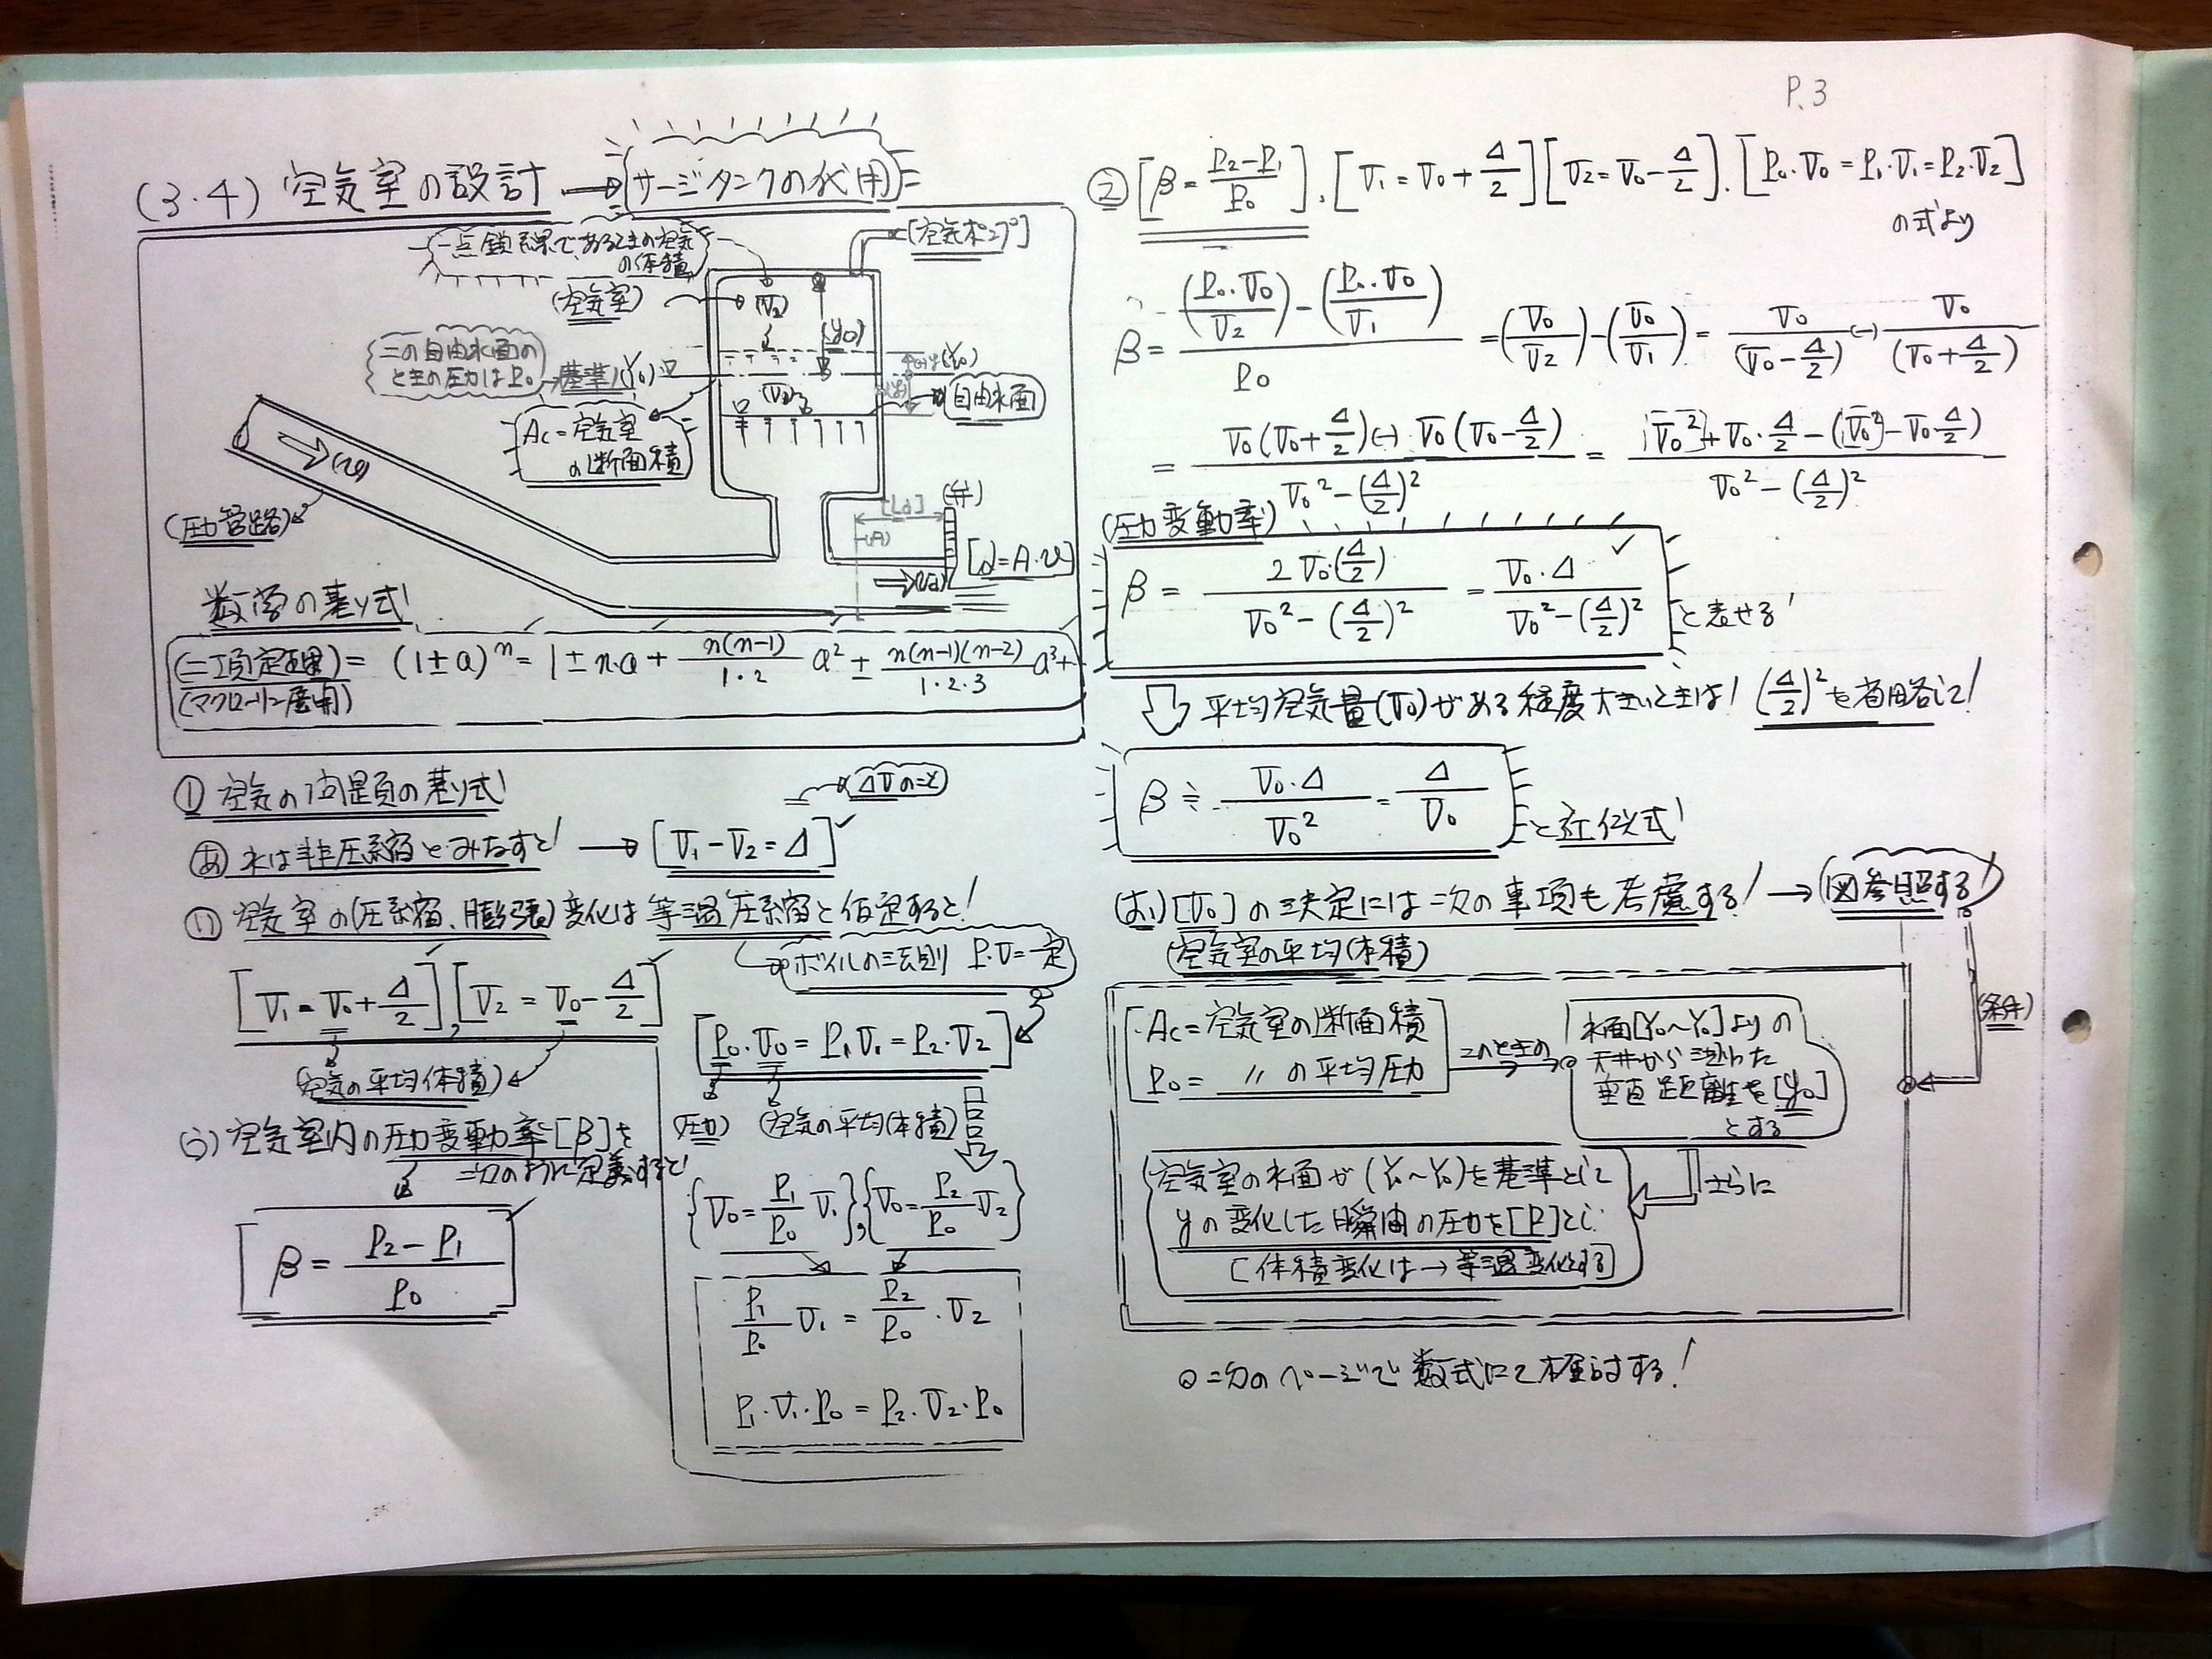 P.3
(3.4) 空気室の設計 → サージタンクの代用
一点鎖線であるときの空気
の体積
[空気ポンプ]
(空気室)
(V₂)
(y₀)
この自由水面の
ときの圧力はP₀
基準(Y₀)
自由水面
Ac=空気室
の断面積
(v)
(圧力管路)
[Ld]
(弁)
(A)
[Q=A・v]
数学の基本式!
(二項定理) = (1±a)ⁿ = 1±n・a + n(n-1)/1・2 a² ± n(n-1)(n-2)/1・2・3 a³+
(マクローリン展開)
① 空気の問題の基本式!
ΔVのこと
あ 水は非圧縮とみなすと! → [V₁-V₂=Δ]
い 空気室の(圧縮、膨張)変化は等温圧縮と仮定すると!
ボイルの法則 P・V=一定
[V₁=V₀+Δ/2], [V₂=V₀-Δ/2]
(空気の平均体積)
[P₀・V₀=P₁V₁=P₂・V₂]
(圧力) (空気の平均体積)
う) 空気室内の圧力変動率[β]を
次のように定義すると
β = (P₂-P₁)/P₀
{V₀=P₁/P₀ V₁}, {V₀=P₂/P₀ V₂}
P₁/P₀ V₁ = P₂/P₀・V₂
P₁・V₁・P₀ = P₂・V₂・P₀
② [β=(P₂-P₁)/P₀], [V₁=V₀+Δ/2] [V₂=V₀-Δ/2], [P₀・V₀=P₁・V₁=P₂・V₂]
の式より
β = ((P₀・V₀/V₂)-(P₀・V₀/V₁))/P₀ = (V₀/V₂)-(V₀/V₁) = V₀/(V₀-Δ/2) (-) V₀/(V₀+Δ/2)
= (V₀(V₀+Δ/2)(-)V₀(V₀-Δ/2))/(V₀²-(Δ/2)²) = (V₀²+V₀・Δ/2-(V₀²-V₀・Δ/2))/(V₀²-(Δ/2)²)
(圧力変動率)
β = 2V₀・(Δ/2)/(V₀²-(Δ/2)²) = V₀・Δ/(V₀²-(Δ/2)²) と表せる!
平均空気量(V₀)がある程度大きいときは! (Δ/2)²を省略して!
β ≒ V₀・Δ/V₀² = Δ/V₀ と近似式!
(お) [V₀]の決定には次の事項も考慮する! → 図参照する!
(空気室の平均体積)
(条件)
・Ac=空気室の断面積
P₀= 〃 の平均圧力
このときの
水面[Y₀~Y₀]よりの
天井から測った
垂直距離を[y₀]
とする
さらに
空気室の水面が(Y₀~Y₀)を基準として
yの変化した瞬間の圧力を[P]とし
[体積変化は→等温変化する]
⊙次のページで数式にて検討する!